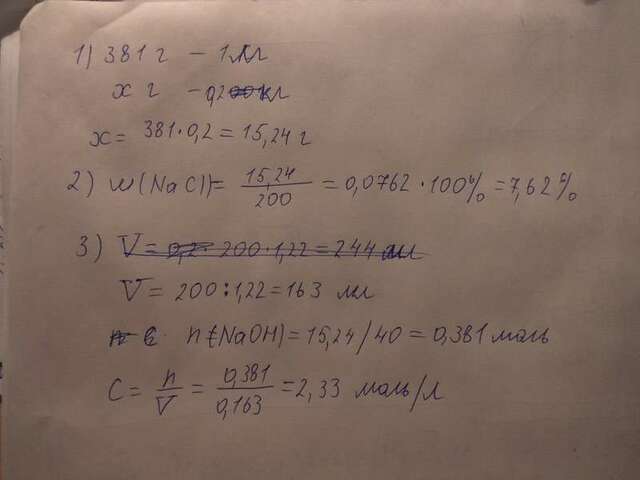 1) 381 г - 1 кг
x г - 0,2 кг
x = 381 · 0,2 = 15,24 г
2) w(NaCl) = 15,24 / 200 = 0,0762 · 100% = 7,62%
3) V = 0,2 · 200 · 1,22 = 244 мл
V = 200 : 1,22 = 163 мл
n (NaOH) = 15,24 / 40 = 0,381 моль
C = n / V = 0,381 / 0,163 = 2,33 моль/л